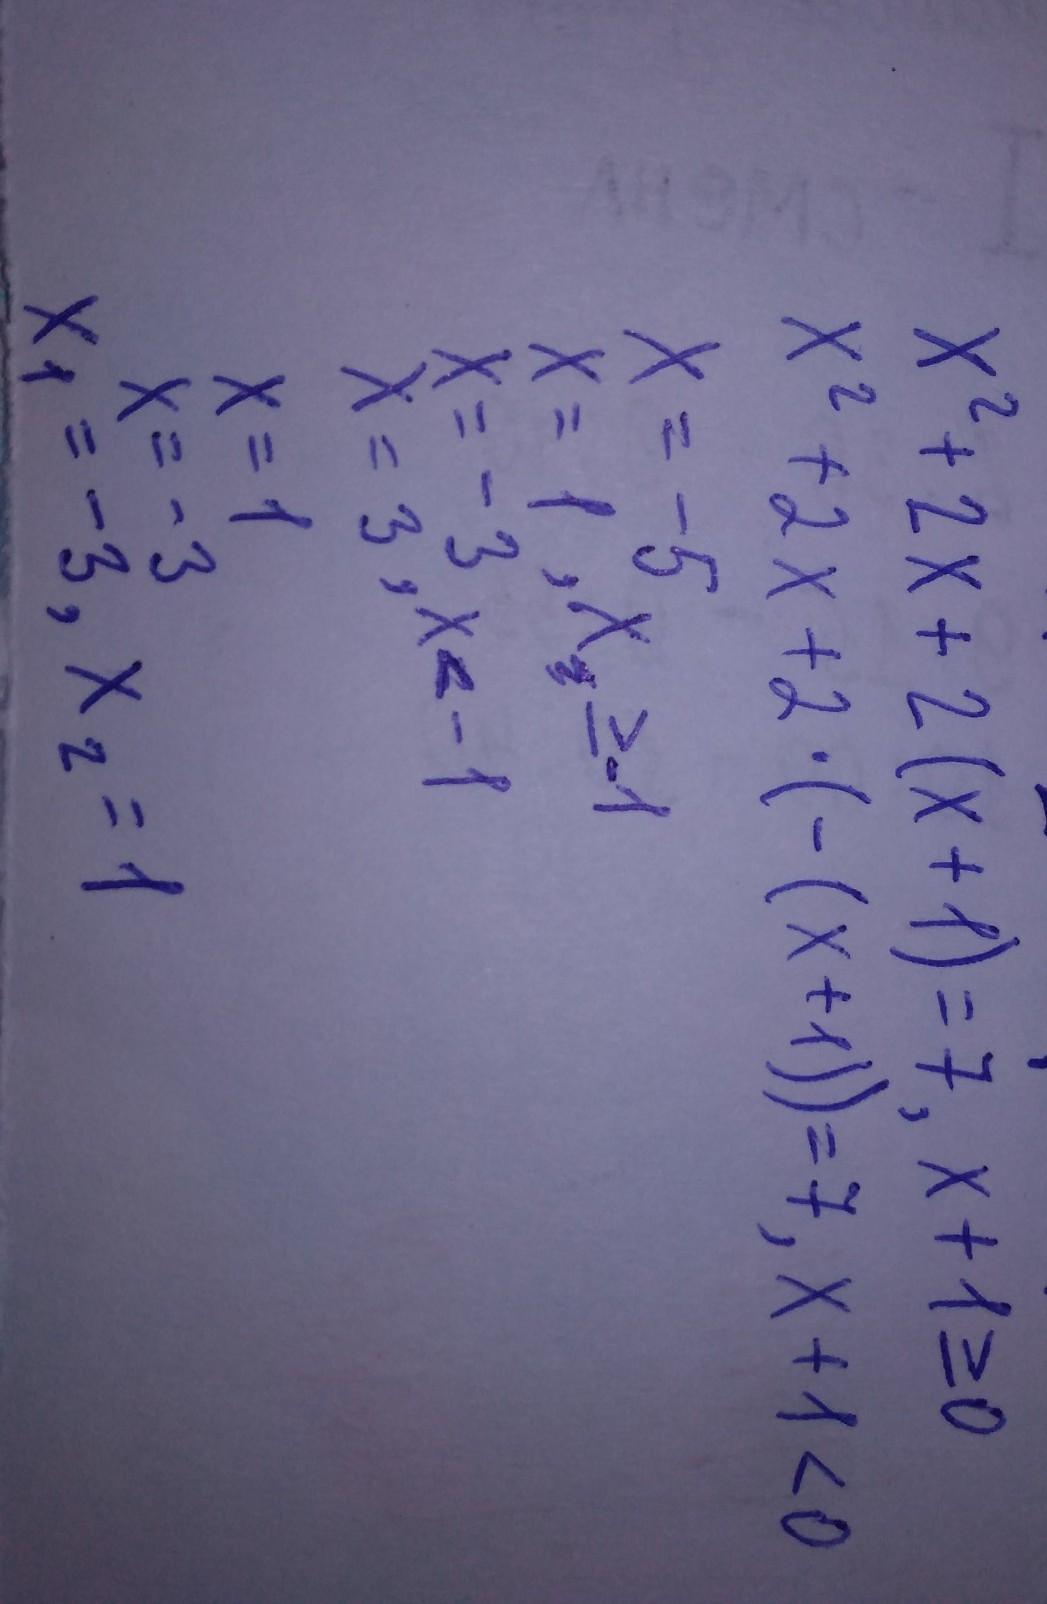 x² + 2x + 2(x + 1) = 7, x + 1 ≥ 0
x² + 2x + 2 · (-(x + 1)) = 7, x + 1 < 0
x = -5
x = 1, x ≥ -1
x = -3
x = 3, x < -1
x = 1
x = -3
x₁ = -3, x₂ = 1